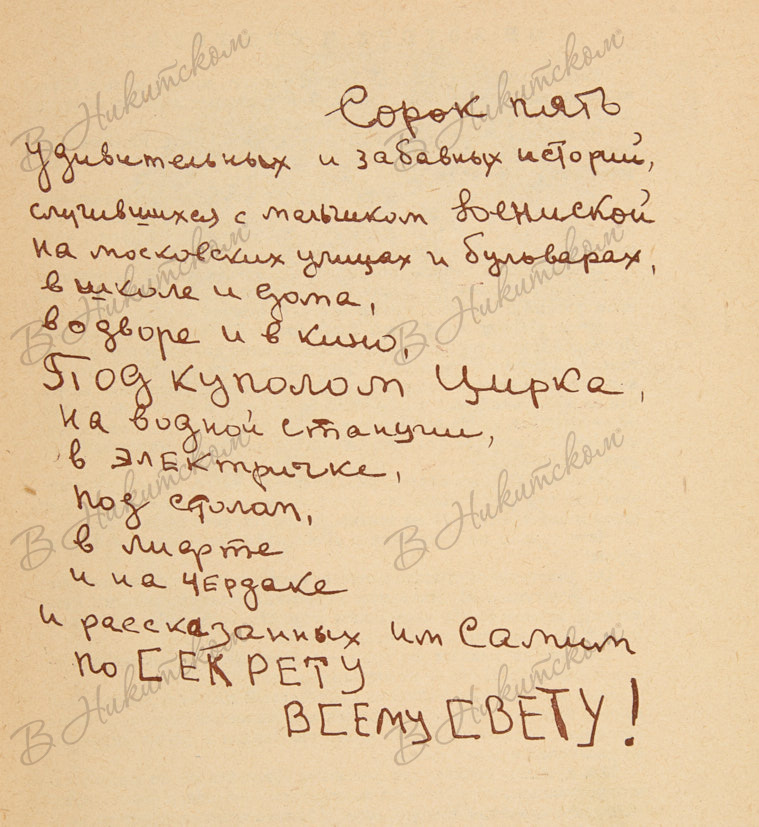 Сорок пять
удивительных и забавных историй,
случившихся с мальчиком Дениской
на московских улицах и бульварах,
в школе и дома,
во дворе и в кино,
Под куполом Цирка,
на водной станции,
в электричке,
под столом,
в лифте
и на чердаке
и рассказанных им Самим
по СЕКРЕТУ
ВСЕМУ СВЕТУ!
В Никитском
В Никитском
В Никитском
В Никитском
В Никитском
В Никитском
В Никитском
В Никитском